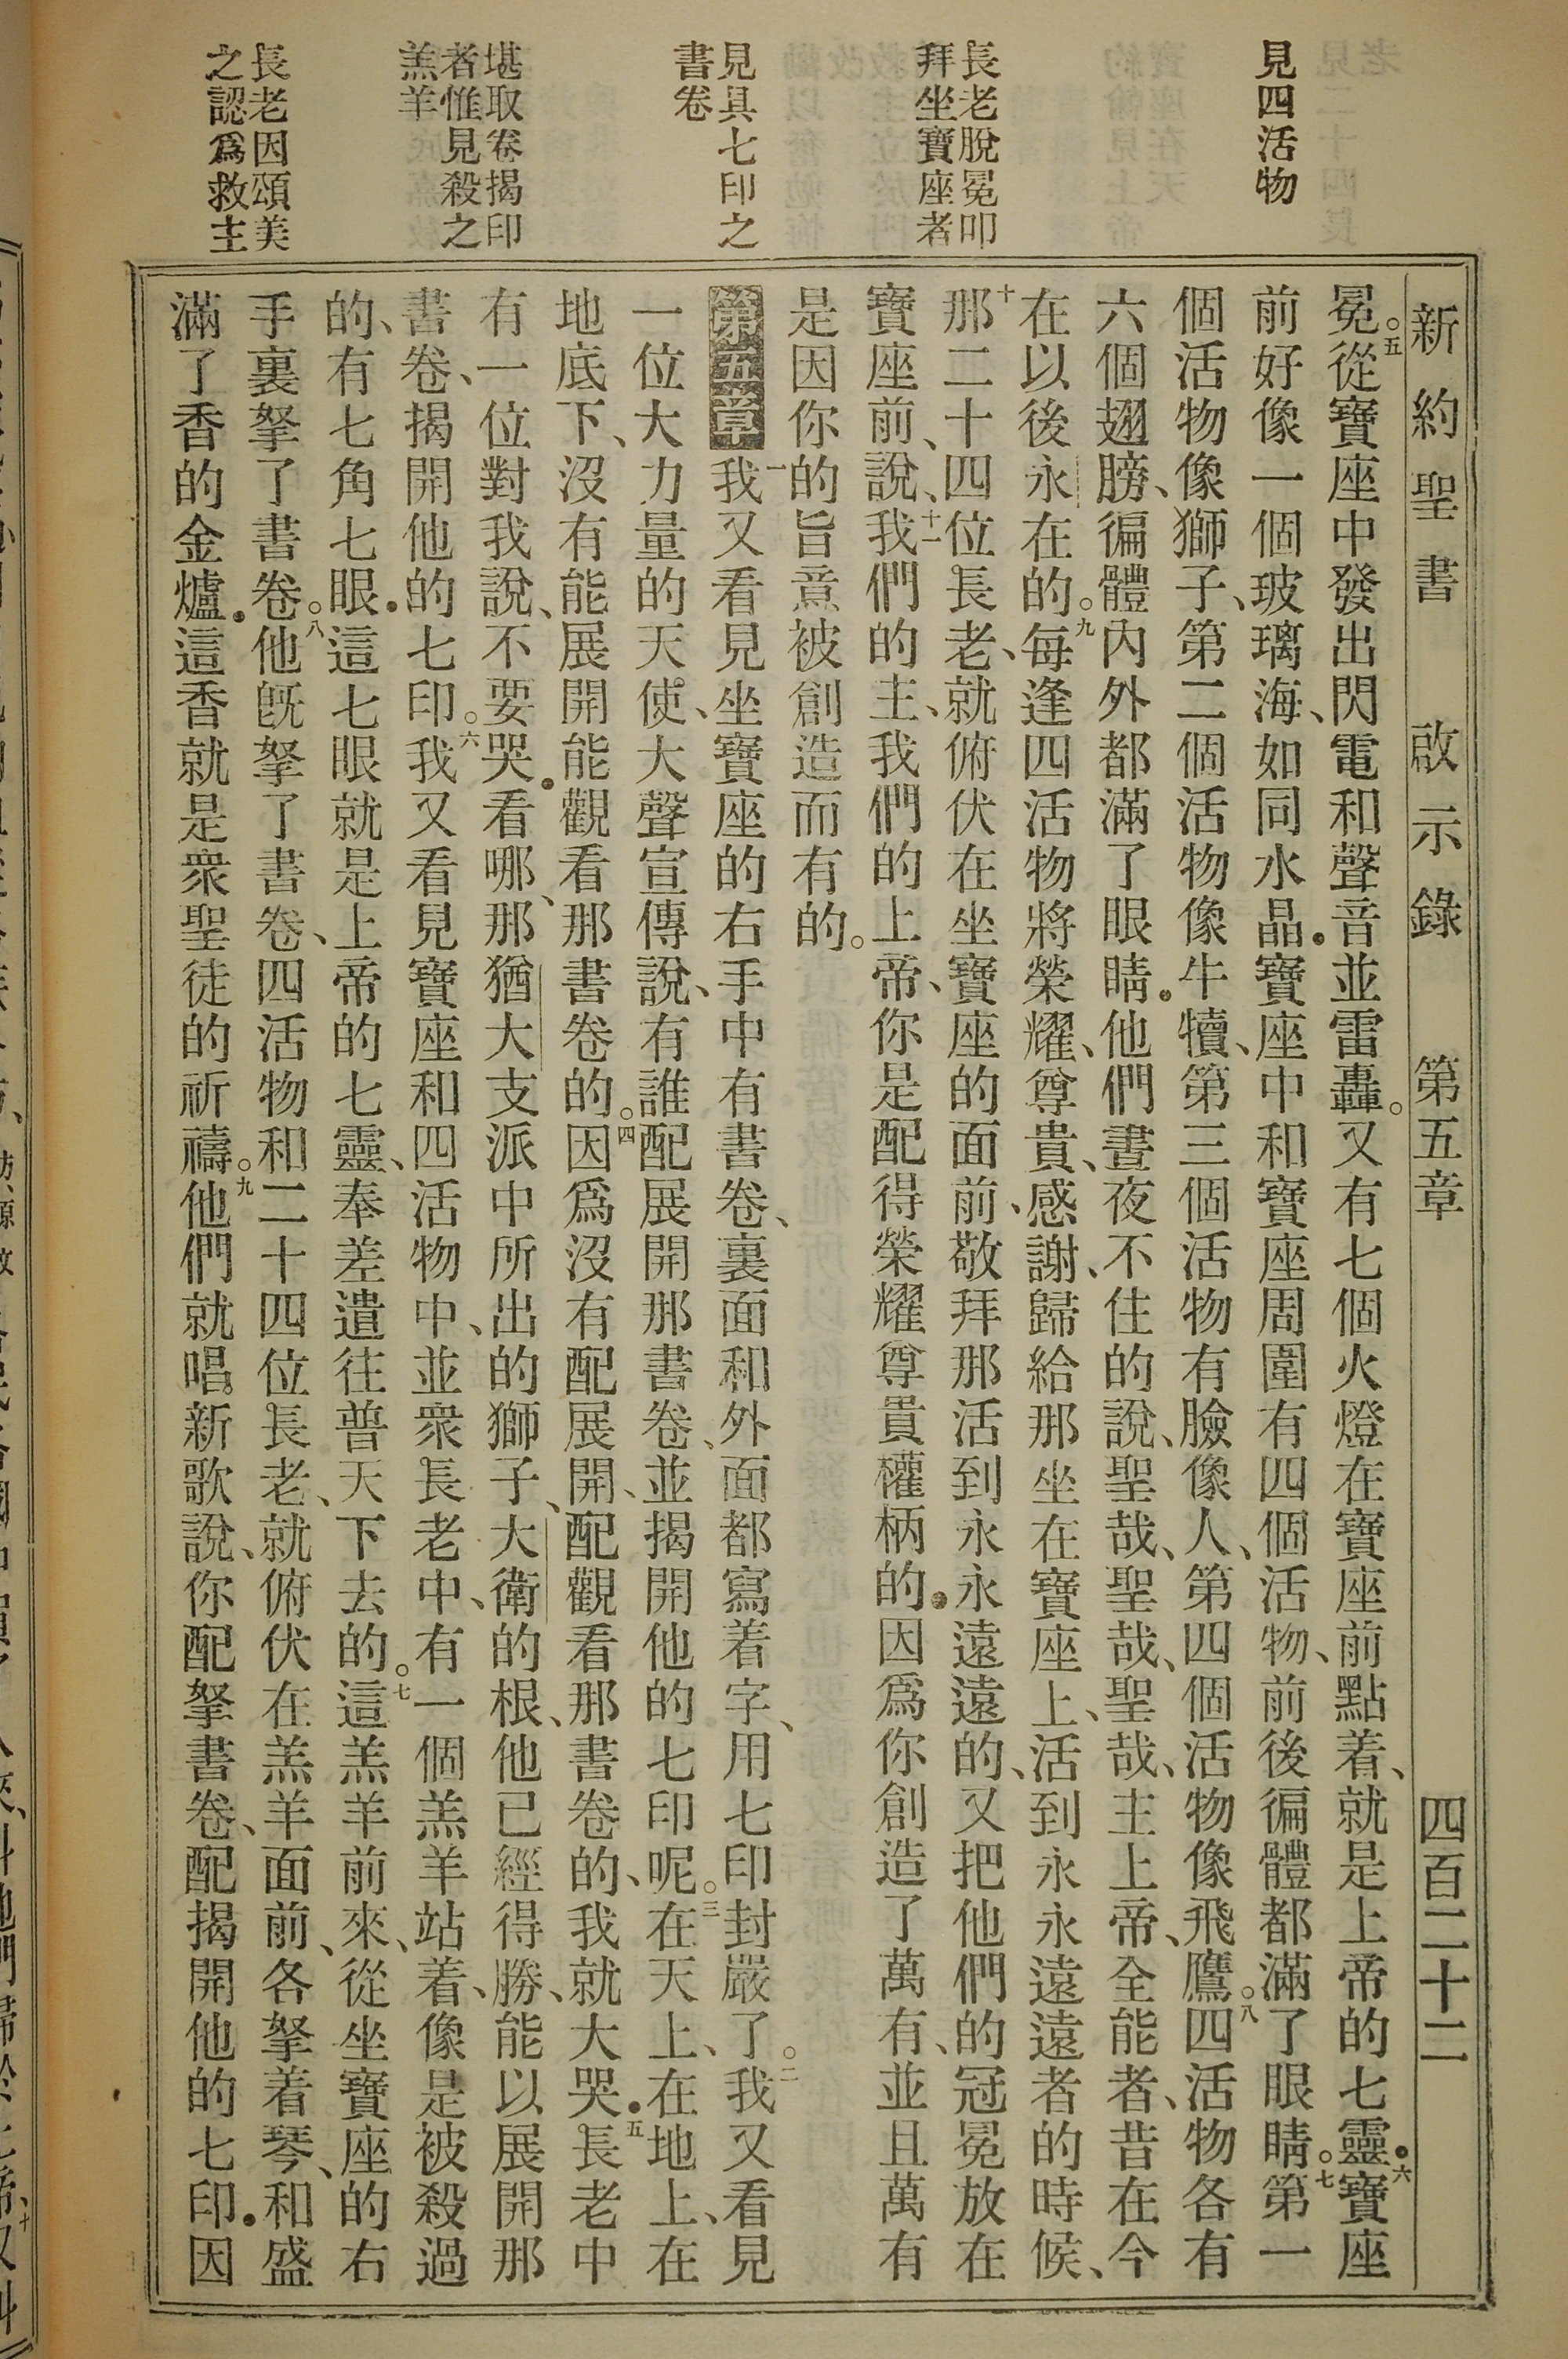 新約聖書 啟示錄 第五章 四百二十二
見四活物
長老脫冕叩
拜坐寶座者
見具七印之
書卷
堪取卷揭印
者惟見殺之
羔羊
長老因頌美
之認爲救主
冕。五從寶座中發出閃電和聲音並雷轟。又有七個火燈在寶座前點着、就是上帝的七靈．六寶座
前好像一個玻璃海、如同水晶．寶座中和寶座周圍有四個活物、前後徧體都滿了眼睛。七第一
個活物像獅子、第二個活物像牛犢、第三個活物有臉像人、第四個活物像飛鷹。八四活物各有
六個翅膀、徧體內外都滿了眼睛．他們晝夜不住的說、聖哉、聖哉、聖哉、主上帝、全能者、昔在今
在以後永在的。九每逢四活物將榮耀、尊貴、感謝、歸給那坐在寶座上、活到永永遠遠者的時候、
十那二十四位長老、就俯伏在坐寶座的面前、敬拜那活到永永遠遠的、又把他們的冠冕放在
寶座前、說、十一我們的主、我們的上帝、你是配得榮耀尊貴權柄的．因爲你創造了萬有、並且萬有
是因你的旨意被創造而有的。
第五章 一我又看見坐寶座的右手中有書卷、裏面和外面都寫着字、用七印封嚴了。二我又看見
一位大力量的天使、大聲宣傳說、有誰配展開那書卷、並揭開他的七印呢。三在天上、在地上、在
地底下、沒有能展開能觀看那書卷的。四因爲沒有配展開、配觀看那書卷的、我就大哭．五長老中
有一位對我說、不要哭．看哪、那猶大支派中所出的獅子、大衛的根、他已經得勝、能以展開那
書卷、揭開他的七印。六我又看見寶座和四活物中、並衆長老中、有一個羔羊站着、像是被殺過
的、有七角七眼．這七眼就是上帝的七靈、奉差遣往普天下去的。七這羔羊前來、從坐寶座的右
手裏拏了書卷。八他旣拏了書卷、四活物和二十四位長老、就俯伏在羔羊面前、各拏着琴、和盛
滿了香的金爐．這香就是衆聖徒的祈禱。九他們就唱新歌說、你配拏書卷、配揭開他的七印．因